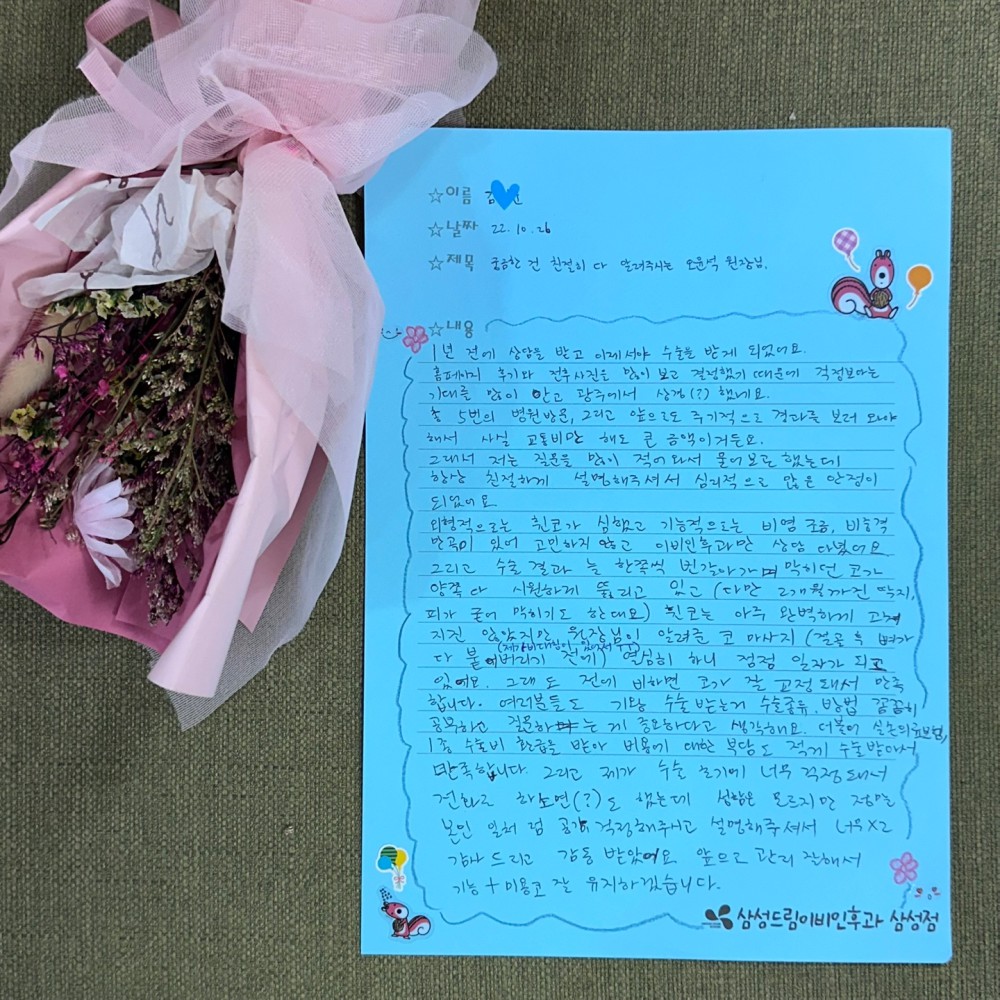 ☆이름 김
☆날짜 22. 10. 26
☆제목 궁금한 건 친절히 다 알려주시는 오윤석 원장님.
☆내용
1년 전에 상담을 받고 이제서야 수술을 받게 되었어요.
홈페이지 후기와 전후사진을 많이 보고 결정했기 때문에 걱정보다는
기대를 많이 안고 광주에서 상경(?) 했네요.
총 5번의 병원방문, 그리고 앞으로도 주기적으로 경과를 보러 와야
해서 사실 교통비만 해도 큰 금액이거든요.
그래서 저는 질문을 많이 적어와서 물어보곤 했는데
항상 친절하게 설명해주셔서 심리적으로 많은 안정이
되었어요
외형적으로는 휜코가 심했고 기능적으로는 비염 조금, 비중격
만곡이 있어 고민하지 않고 이비인후과만 상담 다녔어요
그리고 수술 결과 늘 한쪽씩 번갈아가며 막히던 코가
양쪽 다 시원하게 뚫리고 있고 (다만 2개월까진 딱지,
피가 굳어 막히기도 한대요) 휜코는 아주 완벽하게 고쳐
지진 않았지만 원장님이 알려준 코 마사지 (절골 후 뼈가
다 붙어버리기 전에) 열심히 하니 점점 일자가 되고
있어요. 그래도 전에 비하면 코가 잘 교정돼서 만족
합니다. 여러분들도 기왕 수술받는거 수술종류, 방법 꼼꼼히
공부하고 질문하는 게 중요하다고 생각해요. 더불어 실손의료보험,
1종 수술비 환급을 받아 비용에 대한 부담도 적게 수술받아서
만족합니다. 그리고 제가 수술 초기에 너무 걱정돼서
전화로 하소연(?)도 했는데 성함은 모르지만 정말
본인 일처럼 공감, 걱정해주시고 설명해주셔서 너무X2
감사드리고 감동 받았어요 앞으로 관리 잘해서
기능+미용코 잘 유지하겠습니다.
삼성드림이비인후과 삼성점